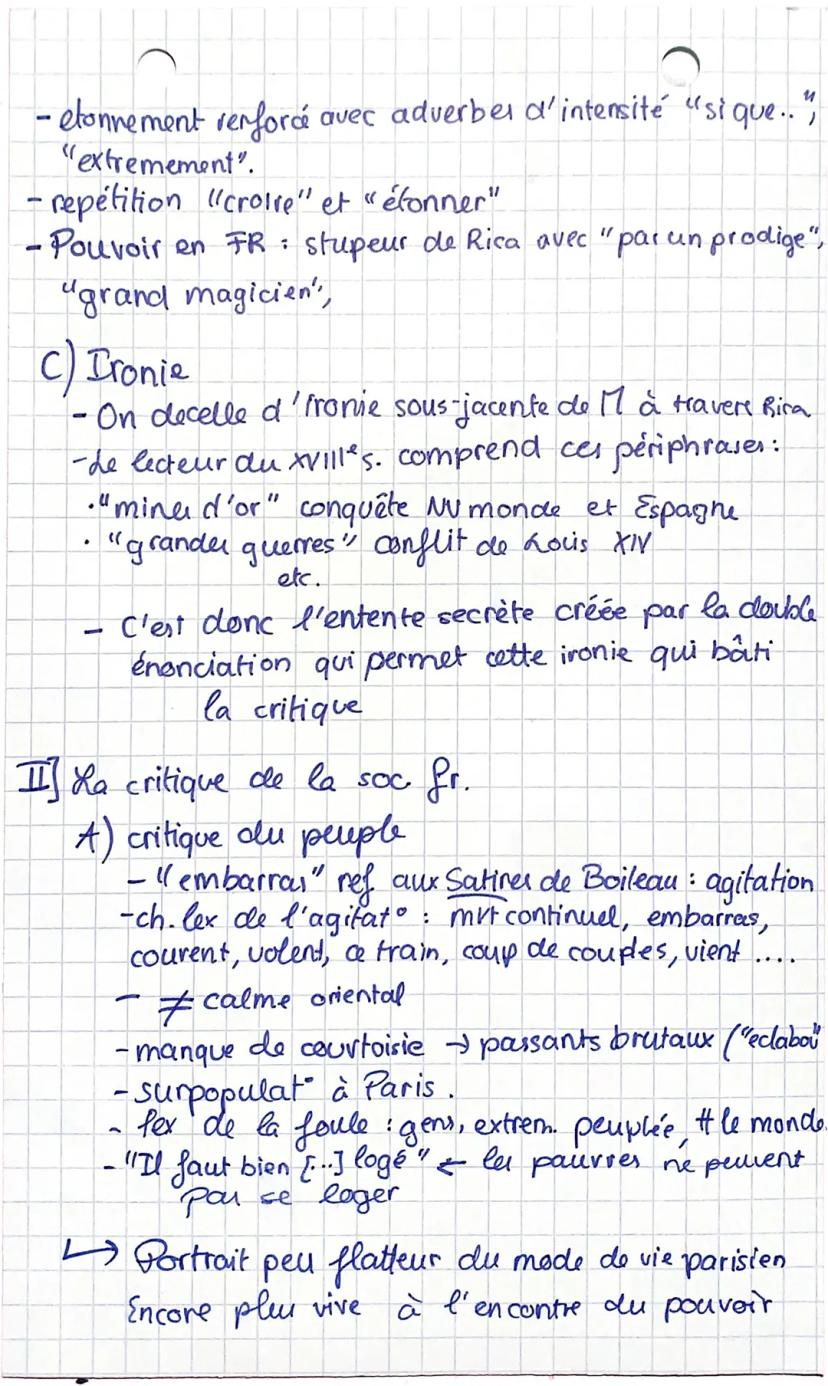 - etonnement renforcé avec adverbes d'intensité "si que..",
"extremement".
- repétition "croire" et "étonner"
- Pouvoir en FR : stupeur de Rica avec "par un prodige",
"grand magicien",
C) Ironie
- On decelle d'Ironie sous-jacente de M à travers Rica
- Le lecteur du XVIIIe s. comprend ces périphrases :
• "mines d'or" conquête NV monde et Espagne
• "grandes guerres" conflit de Louis XIV
etc.
- C'est donc l'entente secrète créée par la double
énonciation qui permet cette ironie qui bâti
la critique
II] La critique de la soc fr.
A) critique du peuple
- "embarras" ref aux Satires de Boileau : agitation
- ch. lex de l'agitat° : mvt continuel, embarras,
courent, volent, ce train, coup de coudes, vient ....
- ≠ calme oriental
- manque de courtoisie → passants brutaux ("eclabou"
- surpopulat° à Paris.
- lex de la foule : gens, extrem. peuplée, tt le monde
- "Il faut bien [...] logé" ← les pauvres ne peuvent
pas se loger
↳ Portrait peu flatteur du mode de vie parisien
Encore plus vive à l'encontre du pouvoir